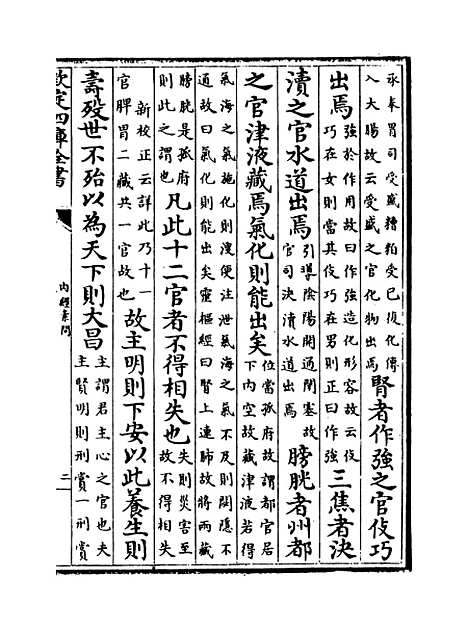 承奉胃司受盛糟粕受已復化傳
入大腸故云受盛之官化物出焉
腎者作強之官伎巧
出焉
強於作用故曰作強造化形容故云伎
巧在女則當其伎巧在男則正曰作強
三焦者決
瀆之官水道出焉
引導陰陽開通閉塞故
官司決瀆水道出焉
膀胱者州都
之官津液藏焉氣化則能出矣
位當孤府故謂都官居
下内空故藏津液若得
氣海之氣施化則溲便注泄氣海之氣不及則閟隱不
通故曰氣化則能出矣靈樞經曰腎上連肺故將兩藏
膀胱是孤府
則此之謂也
凡此十二官者不得相失也
失則災害至
故不得相失
新校正云詳此乃十一
官脾胃二藏共一官故也
故主明則下安以此養生則
壽殁世不殆以為天下則大昌
主謂君主心之官也夫
主賢明則刑賞一刑賞
欽定四庫全書
内經素問
二